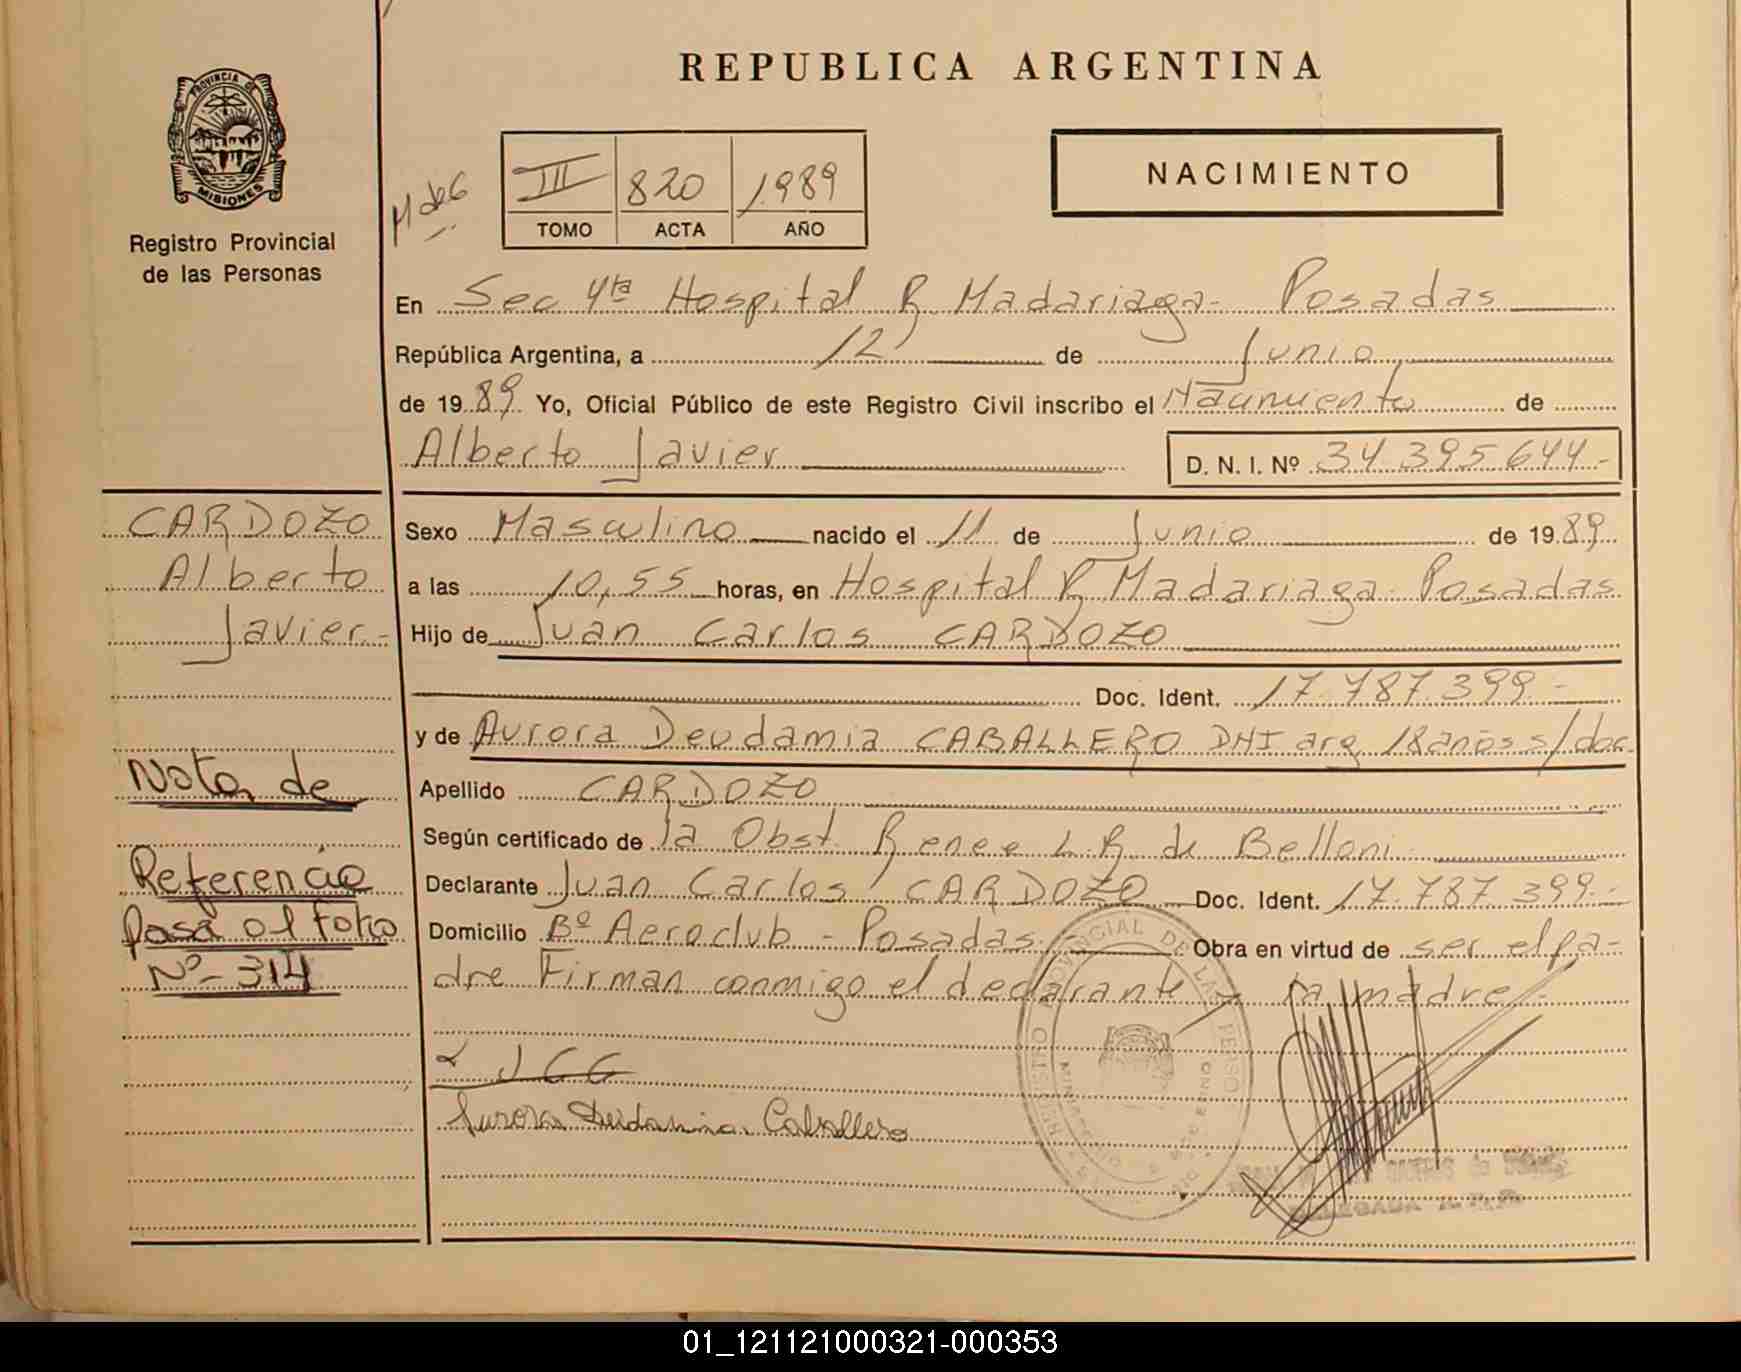 REPUBLICA ARGENTINA
PROVINCIA DE
MISIONES
Registro Provincial
de las Personas
M de G
III 820 1989
TOMO ACTA AÑO
NACIMIENTO
En Sec 4ta Hospital R Madariaga - Posadas
República Argentina, a 12 de Junio
de 1989 Yo, Oficial Público de este Registro Civil inscribo el Nacimiento de
Alberto Javier D. N. I. Nº 34.395.644.-
CARDOZO
Alberto
Javier.-
Sexo Masculino nacido el 11 de Junio de 1989
a las 10,55 horas, en Hospital R Madariaga - Posadas
Hijo de Juan Carlos CARDOZO
Doc. Ident. 17.787.399.-
y de Aurora Deudamia CABALLERO DNI arg 18 años s/doc.
Apellido CARDOZO
Según certificado de la Obst. Renee L.R. de Belloni
Declarante Juan Carlos CARDOZO Doc. Ident. 17.787.399.-
Domicilio Bº Aeroclub - Posadas.- Obra en virtud de ser el pa-
dre Firman conmigo el declarante y la madre.-
Nota de
Referencia
Pasa al folio
Nº - 314
J C C
Aurora Deudamia Caballero
REGISTRO PROVINCIAL DE LAS PERSONAS
MINISTERIO DE GOBIERNO
DELEGADA R.P.P.
01_121121000321-000353